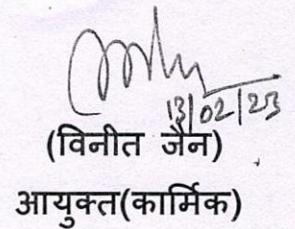 13/02/23
(विनीत जैन)
आयुक्त(कार्मिक)